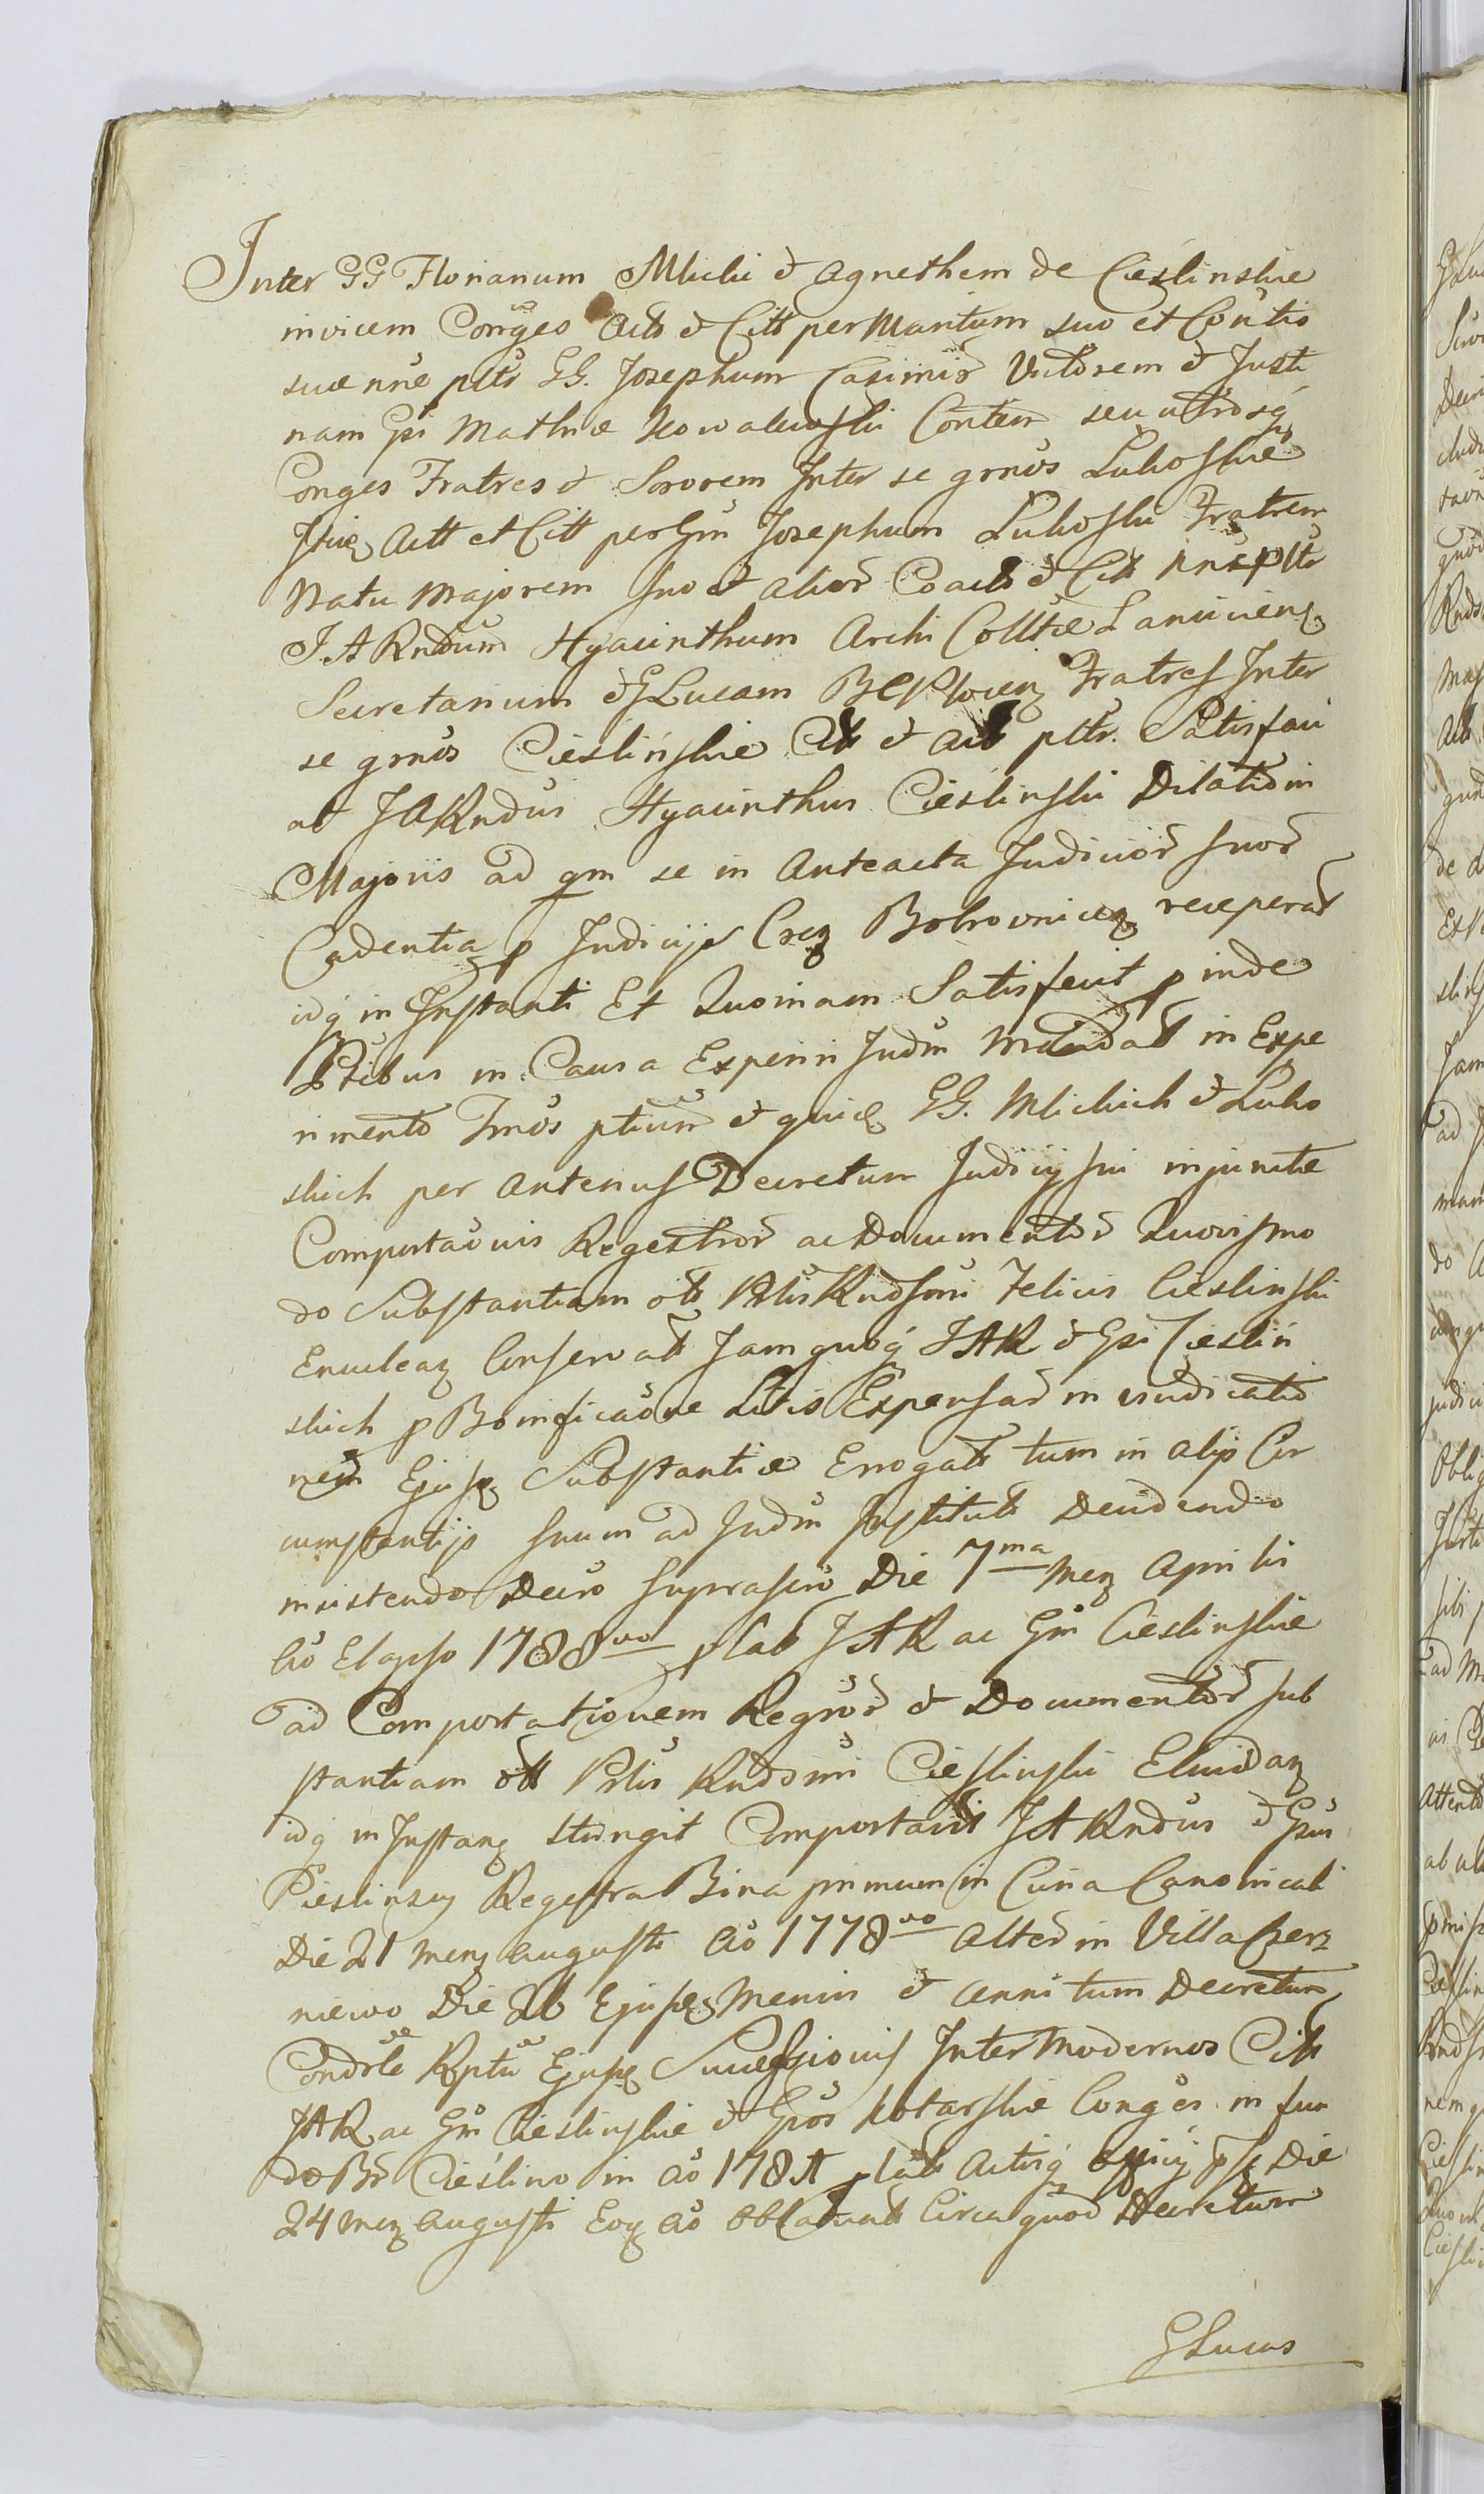 Inter GG Florianum Mlicki & Agnethem de Cieslinskie
invicem Conges Actt & Citt per Maritum suo et Contis
suae nne pltr GG. Josephum Casimir Victorem & Justi
nam Gsi Mathiae Kowalewski Contem seu utrosq
Conges Fratres & Sororem Inter se grnos Lukoskie
Actt et Citt per Gm Josephum Lukoski Fratrem
Natu Majorem suo & alior Coactt & Citt pltr
J.A Rndum Hyacinthum Archi Collta Lanicien
Secretarium & G Lucam Fratres Inter
se grnos Cieslinskie Citt & Actt pltr. Satisfaci
at JARndus Hyacinthus Cieslinski Dilationi
Majoris ad qm se in Anteacta Judicior suor
Cadentia p Judicijs Brobrownicen receperat
idq in Instanti Et Quoniam Satisfecit p inde
Ptibus in Causa Experiri Judm Mandat in Expe
rimento Tmos ptium & quid GG. Mlickich & Luko
skich per antenus Decretum Judicij sui injunctae
Comportaonis Regestror ac Documentor Quovismo
do Substantiam ott Pltis Rndssmi Felicis Cieslinski
Enuclean Conservatt Jam quoq JAR & Gsi Cieslin
skich p Bonificaone Litis Expensar in vindicatio
nem Ejusq Substantiae Erogatt tum in alijs Cir
cumstantijs suum ad Judm Institutt Decidendo
insistendo Decro suprascro Die 7ma Men Aprilis
Ao Elapso 1788vo p lat JAR ac Gm Cieslinskie
ad Comportationem Regror & Documentor sub
stantiam ott Pltis Rndssmi Cieslinski Elucidan
idq in Instan Comportavit JARndus & Gsus
Cieslinscy Regestra Bina primum in Curia Canonicali
Die 21 Men Augusti Ao 1778vo alter in Villa Czer
niewo Die 26 Ejusq Mensis & anni tum Decretum
Condrle Rptu Ejusq Successionis Inter Modernos Citt
JAR ac Gm Cieslinskie & Gsos Kotarskie Conges in fun
do Br Cieslino in Ao 178A p latt Actisq officij Die
24 Men Augusti Eoq Ao Oblatum Circa quod Decretum
G Lucas